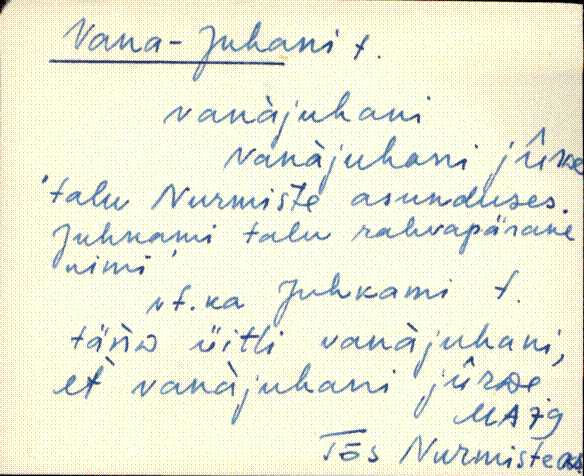 Vana-Juhani t.
vanàjuhani
vanàjuhani jûrde
'talu Nurmiste asunduses.
Juhkami talu rahvapärane
nimi'
vt. ka Juhkami t.
üitli vanàjuhani,
et vanàjuhani jûrde
MA 79
Tõs Nurmiste as